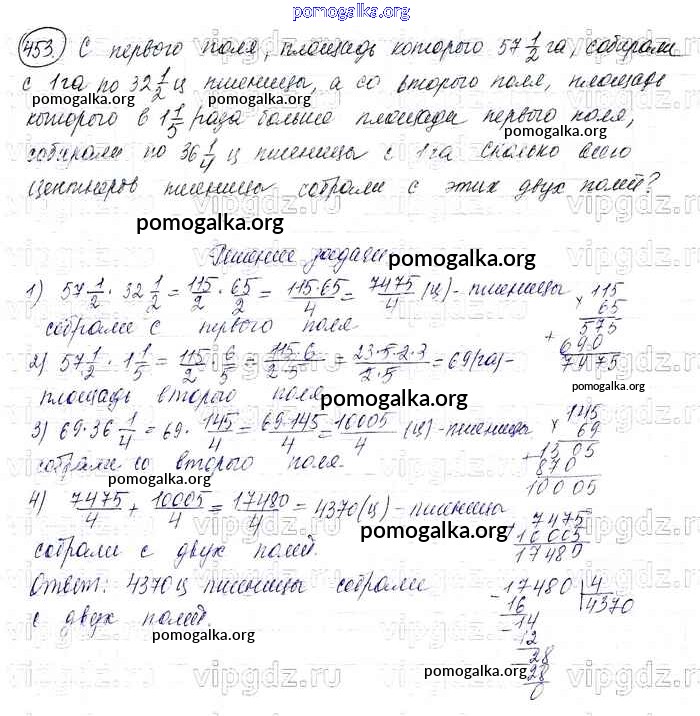 pomogalka.org
453. С первого поля, площадь которого 57 1/2 га, собирали
с 1 га по 32 1/2 ц пшеницы, а со второго поля, площадь
pomogalka.org pomogalka.org
которого в 1 1/5 раза больше площади первого поля,
pomogalka.org
собирали по 36 1/4 ц пшеницы с 1 га. Сколько всего
центнеров пшеницы собрали с этих двух полей?
vipgdz.ru vipgdz.ru
pomogalka.org
Решение задачи
pomogalka.org
1) 57 1/2 · 32 1/2 = 115/2 · 65/2 = 115·65/4 = 7475/4 (ц) - пшеницы
собрали с первого поля
× 115
65
575
+ 690
7475
2) 57 1/2 · 1 1/5 = 115/2 · 6/5 = 115·6/2·5 = 23·5·2·3/2·5 = 69 (га) -
площадь второго поля
pomogalka.org pomogalka.org
3) 69 · 36 1/4 = 69 · 145/4 = 69·145/4 = 10005/4 (ц) - пшеницы
собрали со второго поля.
pomogalka.org
× 145
69
+ 1305
870
10005
4) 7475/4 + 10005/4 = 17480/4 = 4370 (ц) - пшеницы
собрали с двух полей.
pomogalka.org pomogalka.org
+ 7475
10005
17480
Ответ: 4370 ц пшеницы собрали
с двух полей.
pomogalka.org
- 17480 | 4
16 4370
- 14
12
- 28
28
0
pomogalka.org
vipgdz.ru vipgdz.ru